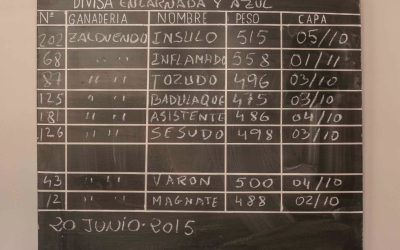 DIVISA ENCARNADA Y AZUL
Nº GANADERIA NOMBRE PESO CAPA
202 ZALDUENDO INSULO 515 05/10
68 " " INFLAMADO 558 01/11
87 " " TOZUDO 496 03/10
125 " " BADULAQUE 475 03/10
181 " " ASISTENTE 486 04/10
126 " " SESUDO 498 03/10
43 " " VARON 500 04/10
12 " " MAGNATE 488 02/10
20 JUNIO-2015